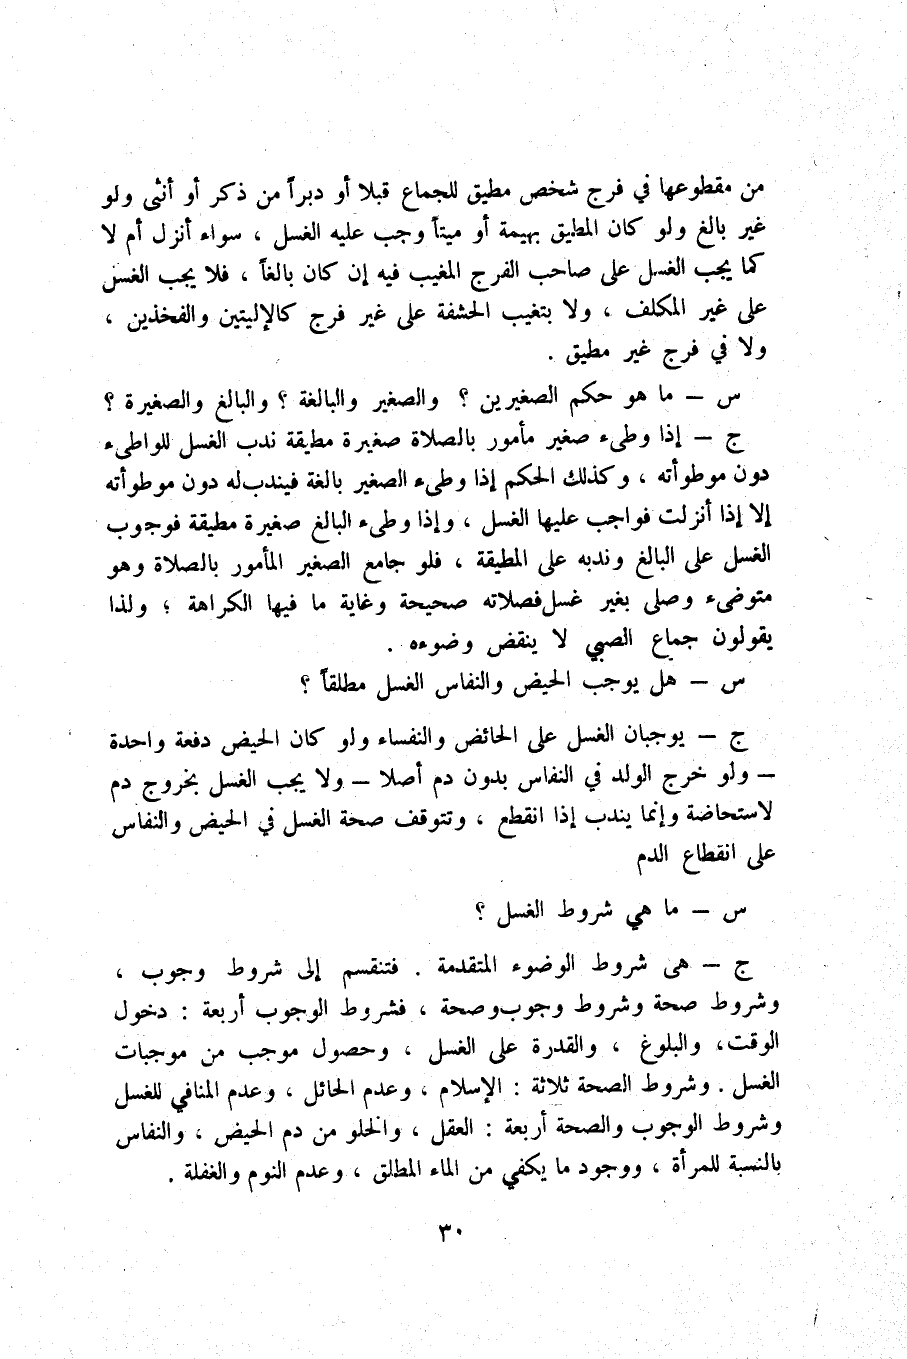 من مقطوعها في فرج شخص مطيق للجماع قبلا أو دبراً من ذكر أو أنثى ولو
غير بالغ ولو كان المطيق بهيمة أو ميتاً وجب عليه الغسل ، سواء أنزل أم لا
كما يجب الغسل على صاحب الفرج المغيب فيه إن كان بالغاً ، فلا يجب الغسل
على غير المكلف ، ولا بتغيب الحشفة على غير فرج كالإليتين والفخذين ،
ولا في فرج غير مطيق .
س – ما هو حكم الصغيرين ؟ والصغير والبالغة ؟ والبالغ والصغيرة ؟
ج – إذا وطىء صغير مأمور بالصلاة صغيرة مطيقة ندب الغسل للواطىء
دون موطوأته ، وكذلك الحكم إذا وطىء الصغير بالغة فيندب له دون موطوأته
إلا إذا أنزلت فواجب عليها الغسل ، وإذا وطىء البالغ صغيرة مطيقة فوجوب
الغسل على البالغ وندبه على المطيقة ، فلو جامع الصغير المأمور بالصلاة وهو
متوضىء وصلى بغير غسل فصلاته صحيحة وغاية ما فيها الكراهة ؛ ولذا
يقولون جماع الصبي لا ينقض وضوءه .
س – هل يوجب الحيض والنفاس الغسل مطلقاً ؟
ج – يوجبان الغسل على الحائض والنفساء ولو كان الحيض دفعة واحدة
– ولو خرج الولد في النفاس بدون دم أصلا – ولا يجب الغسل بخروج دم
لاستحاضة وإنما يندب إذا انقطع ، وتتوقف صحة الغسل في الحيض والنفاس
على انقطاع الدم
س – ما هي شروط الغسل ؟
ج – هي شروط الوضوء المتقدمة . فتنقسم إلى شروط وجوب ،
وشروط صحة وشروط وجوب وصحة ، فشروط الوجوب أربعة : دخول
الوقت، والبلوغ ، والقدرة على الغسل ، وحصول موجب من موجبات
الغسل . وشروط الصحة ثلاثة : الإسلام ، وعدم الحائل ، وعدم المنافي للغسل
وشروط الوجوب والصحة أربعة : العقل ، والخلو من دم الحيض ، والنفاس
بالنسبة للمرأة ، ووجود ما يكفي من الماء المطلق ، وعدم النوم والغفلة .
٣٠